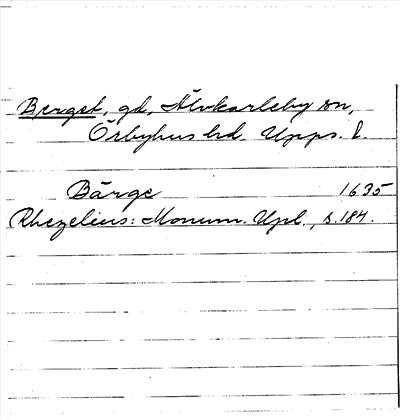 Berget, gd, Älvkarleby sn,
Örbyhus hd. Upps. l.
Bärge 1635
Rhezelius: Monum. Upl., s. 184.